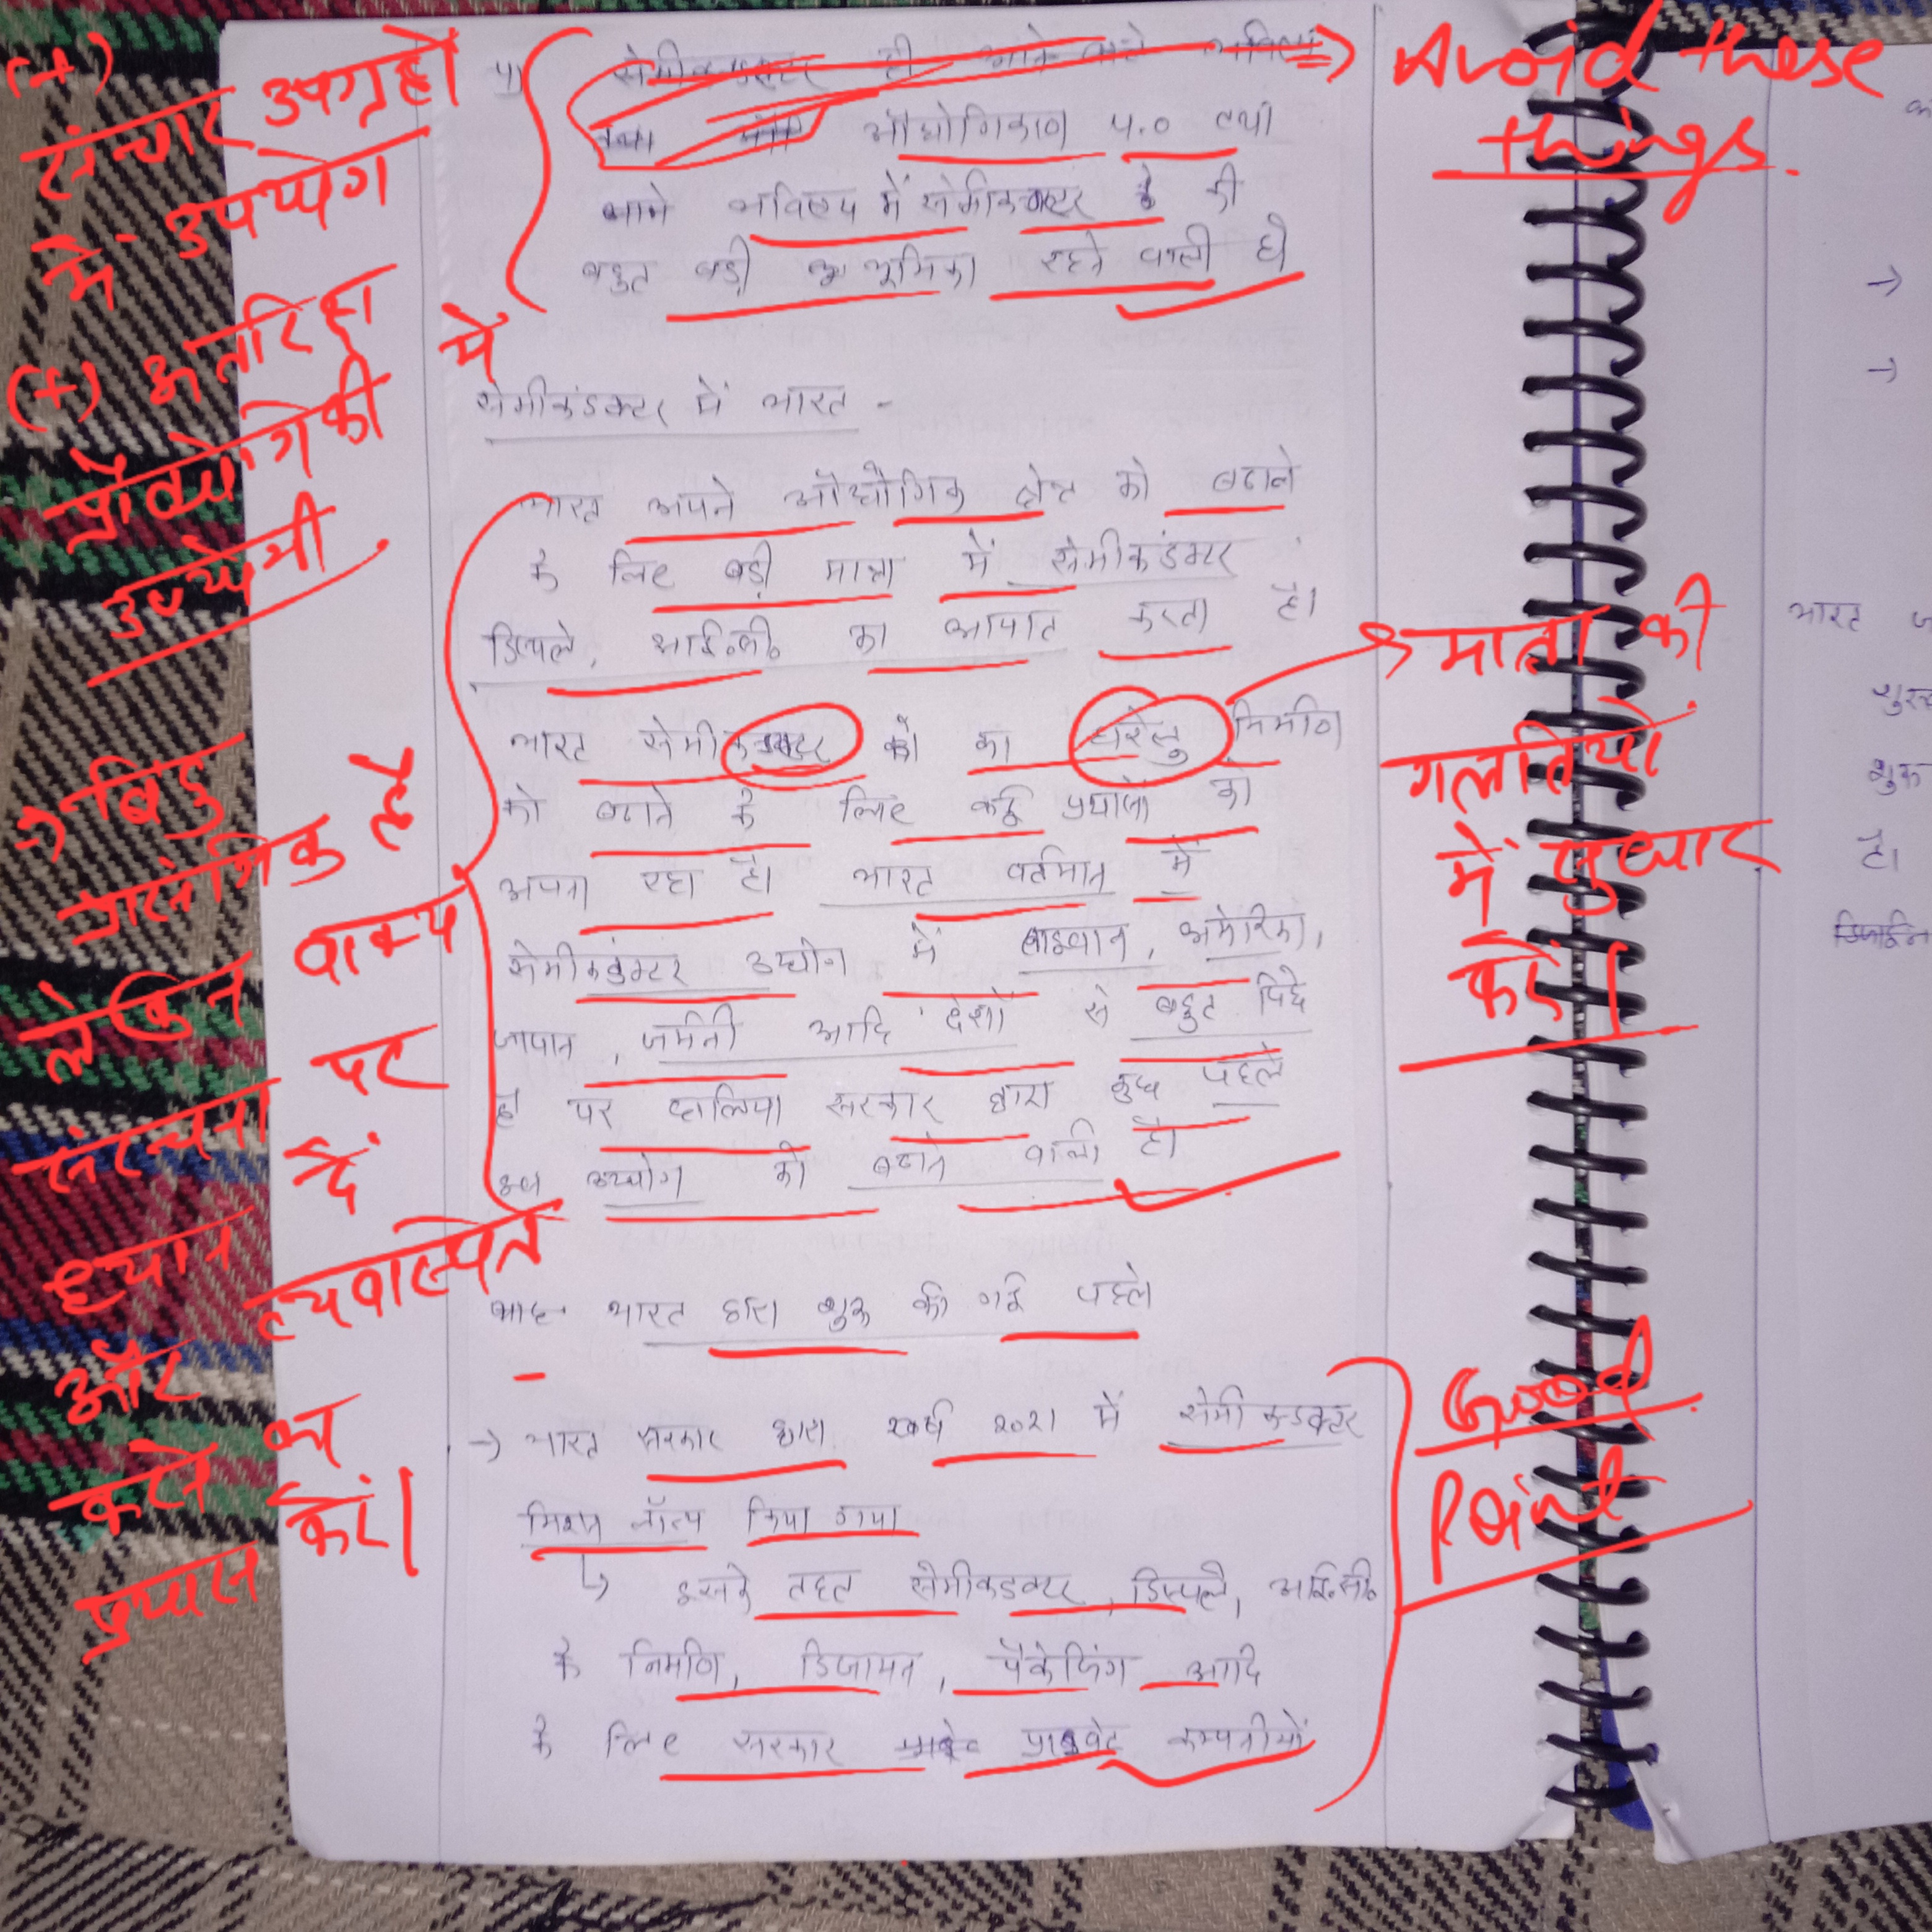 4)
औद्योगिकरण 4.0 तथा
आने भविष्य में सेमीकन्डक्टर की
बहुत बड़ी भूमिका रहने वाली है
Avoid these
things.
(+)
संचार उपग्रहों
में उपयोग
(+) अंतरिक्ष
में
प्रौद्योगिकी
उपयोगी
सेमीकंडक्टर में भारत -
भारत अपने औद्योगिक क्षेत्र को बढाने
के लिए बड़ी मात्रा में सेमीकंडक्टर
डिस्पले, आई॰सी॰ का आयात करता है।
भारत सेमीकन्डक्टर का घरेलु निर्माण
को बढाने के लिए कई प्रयासों को
अपना रहा है। भारत वर्तमान में
सेमीकंडक्टर उद्योग में ताइवान, अमेरिका,
जापान, जर्मनी आदि देशों से बहुत पिछे
है पर हालिया सरकार द्वारा कुछ पहले
इस उद्योग को बढाने वाली है।
मात्रा की
गलतियों
में सुधार
करें।
→ बिंदु
प्रासंगिक है
लेकिन वाक्य
संरचना पर
ध्यान दें
और व्यवस्थित
करने का
प्रयास करें।
भारत द्वारा शुरू की गई पहले
→ भारत सरकार द्वारा वर्ष 2021 में सेमीकन्डक्टर
मिशन लॉन्च किया गया
↳ इसके तहत सेमीकंडक्टर, डिस्पले, आई॰सी॰
के निर्माण, डिजायन, पैकेजिंग आदि
के लिए सरकार प्राइवेट कम्पनीयों
Good
Point
→
→
भारत
शुरू
है।